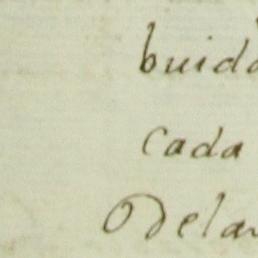 buida
cada
Delan